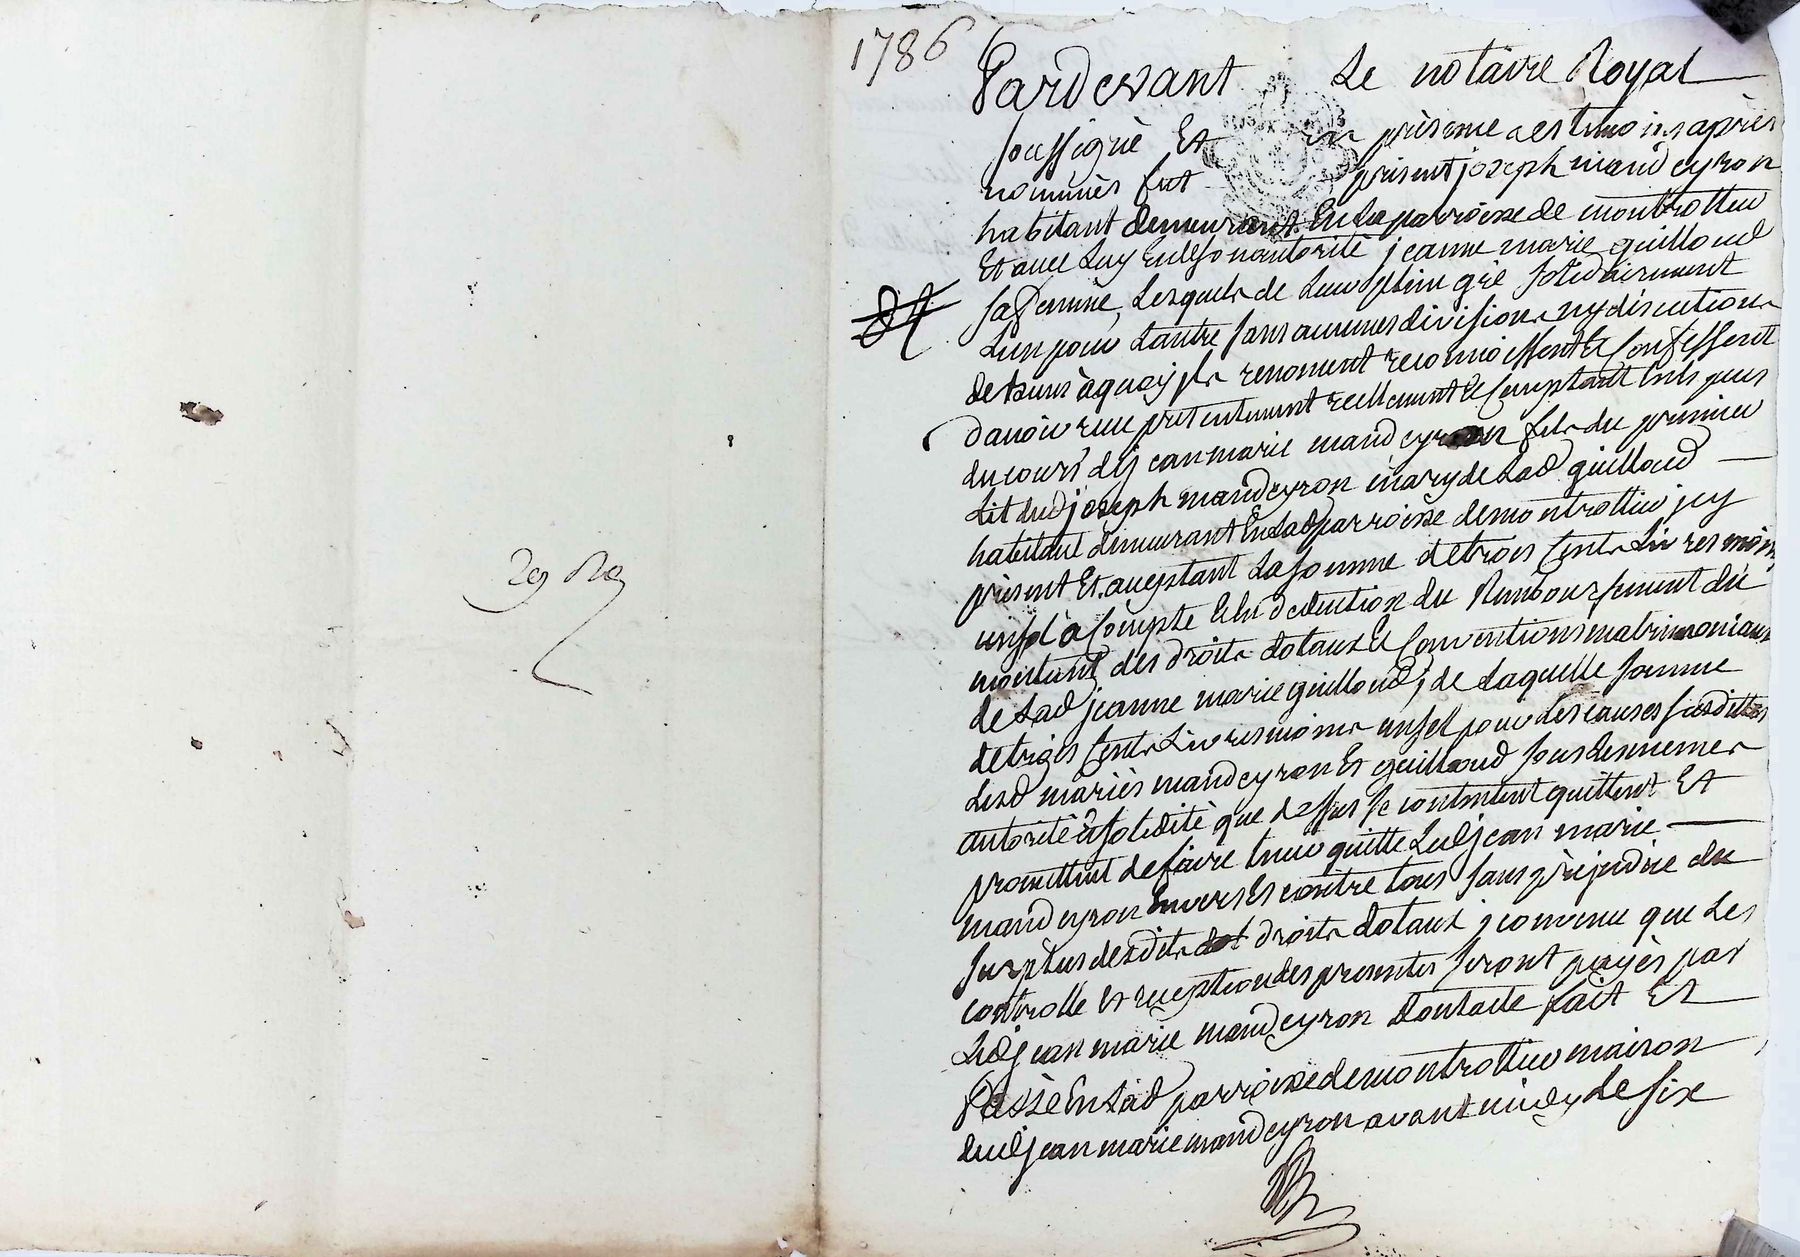 1786
Pardevant Le notaire Royal
soussigné Et en présence des temoins après
nommés fut présent joseph mandeyron
habitant demeurant En La parroisse de montrottier
Et avec Luy Et de son autorité jeanne marie guilloud
sa femme, Lesquels de Leur plein gré solidairement
L'un pour L'autre sans aucunes division ny discution
de biens à quoy ils renoncent reconnoissent Et Confessent
d'avoir reçu présentement reellement Et Comptant En Espèces
du cours de jean marie mandeyron fils du premier
Lit dud joseph mandeyron mary de Lad guilloud
habitant demeurant En Lad parroisse de montrottier jcy
présent Et acceptant La somme de trois Cents Livres moins
un sol à Compte Et En deduction du Remboursement du
montant des droits dotaux Et Conventions matrimoniaux
de Lad jeanne marie guilloud, de Laquelle somme
de trois Cents Livres moins un sol pour Les causes susdittes
Lesd mariés mandeyron Et guilloud sous Les memes
autorité Et solidité que dessus se contentent quittent Et
promettent de faire tenir quitte Led jean marie
mandeyron Envers Et contre tous sans préjudice du
surplus desdits dot droits dotaux, convenu que Les
controlle Et reception des presentes seront payés par
Led jean marie mandeyron dont acte fait Et
Passé En Lad parroisse de montrottier maison
dud jean marie mandeyron avant midy Le six